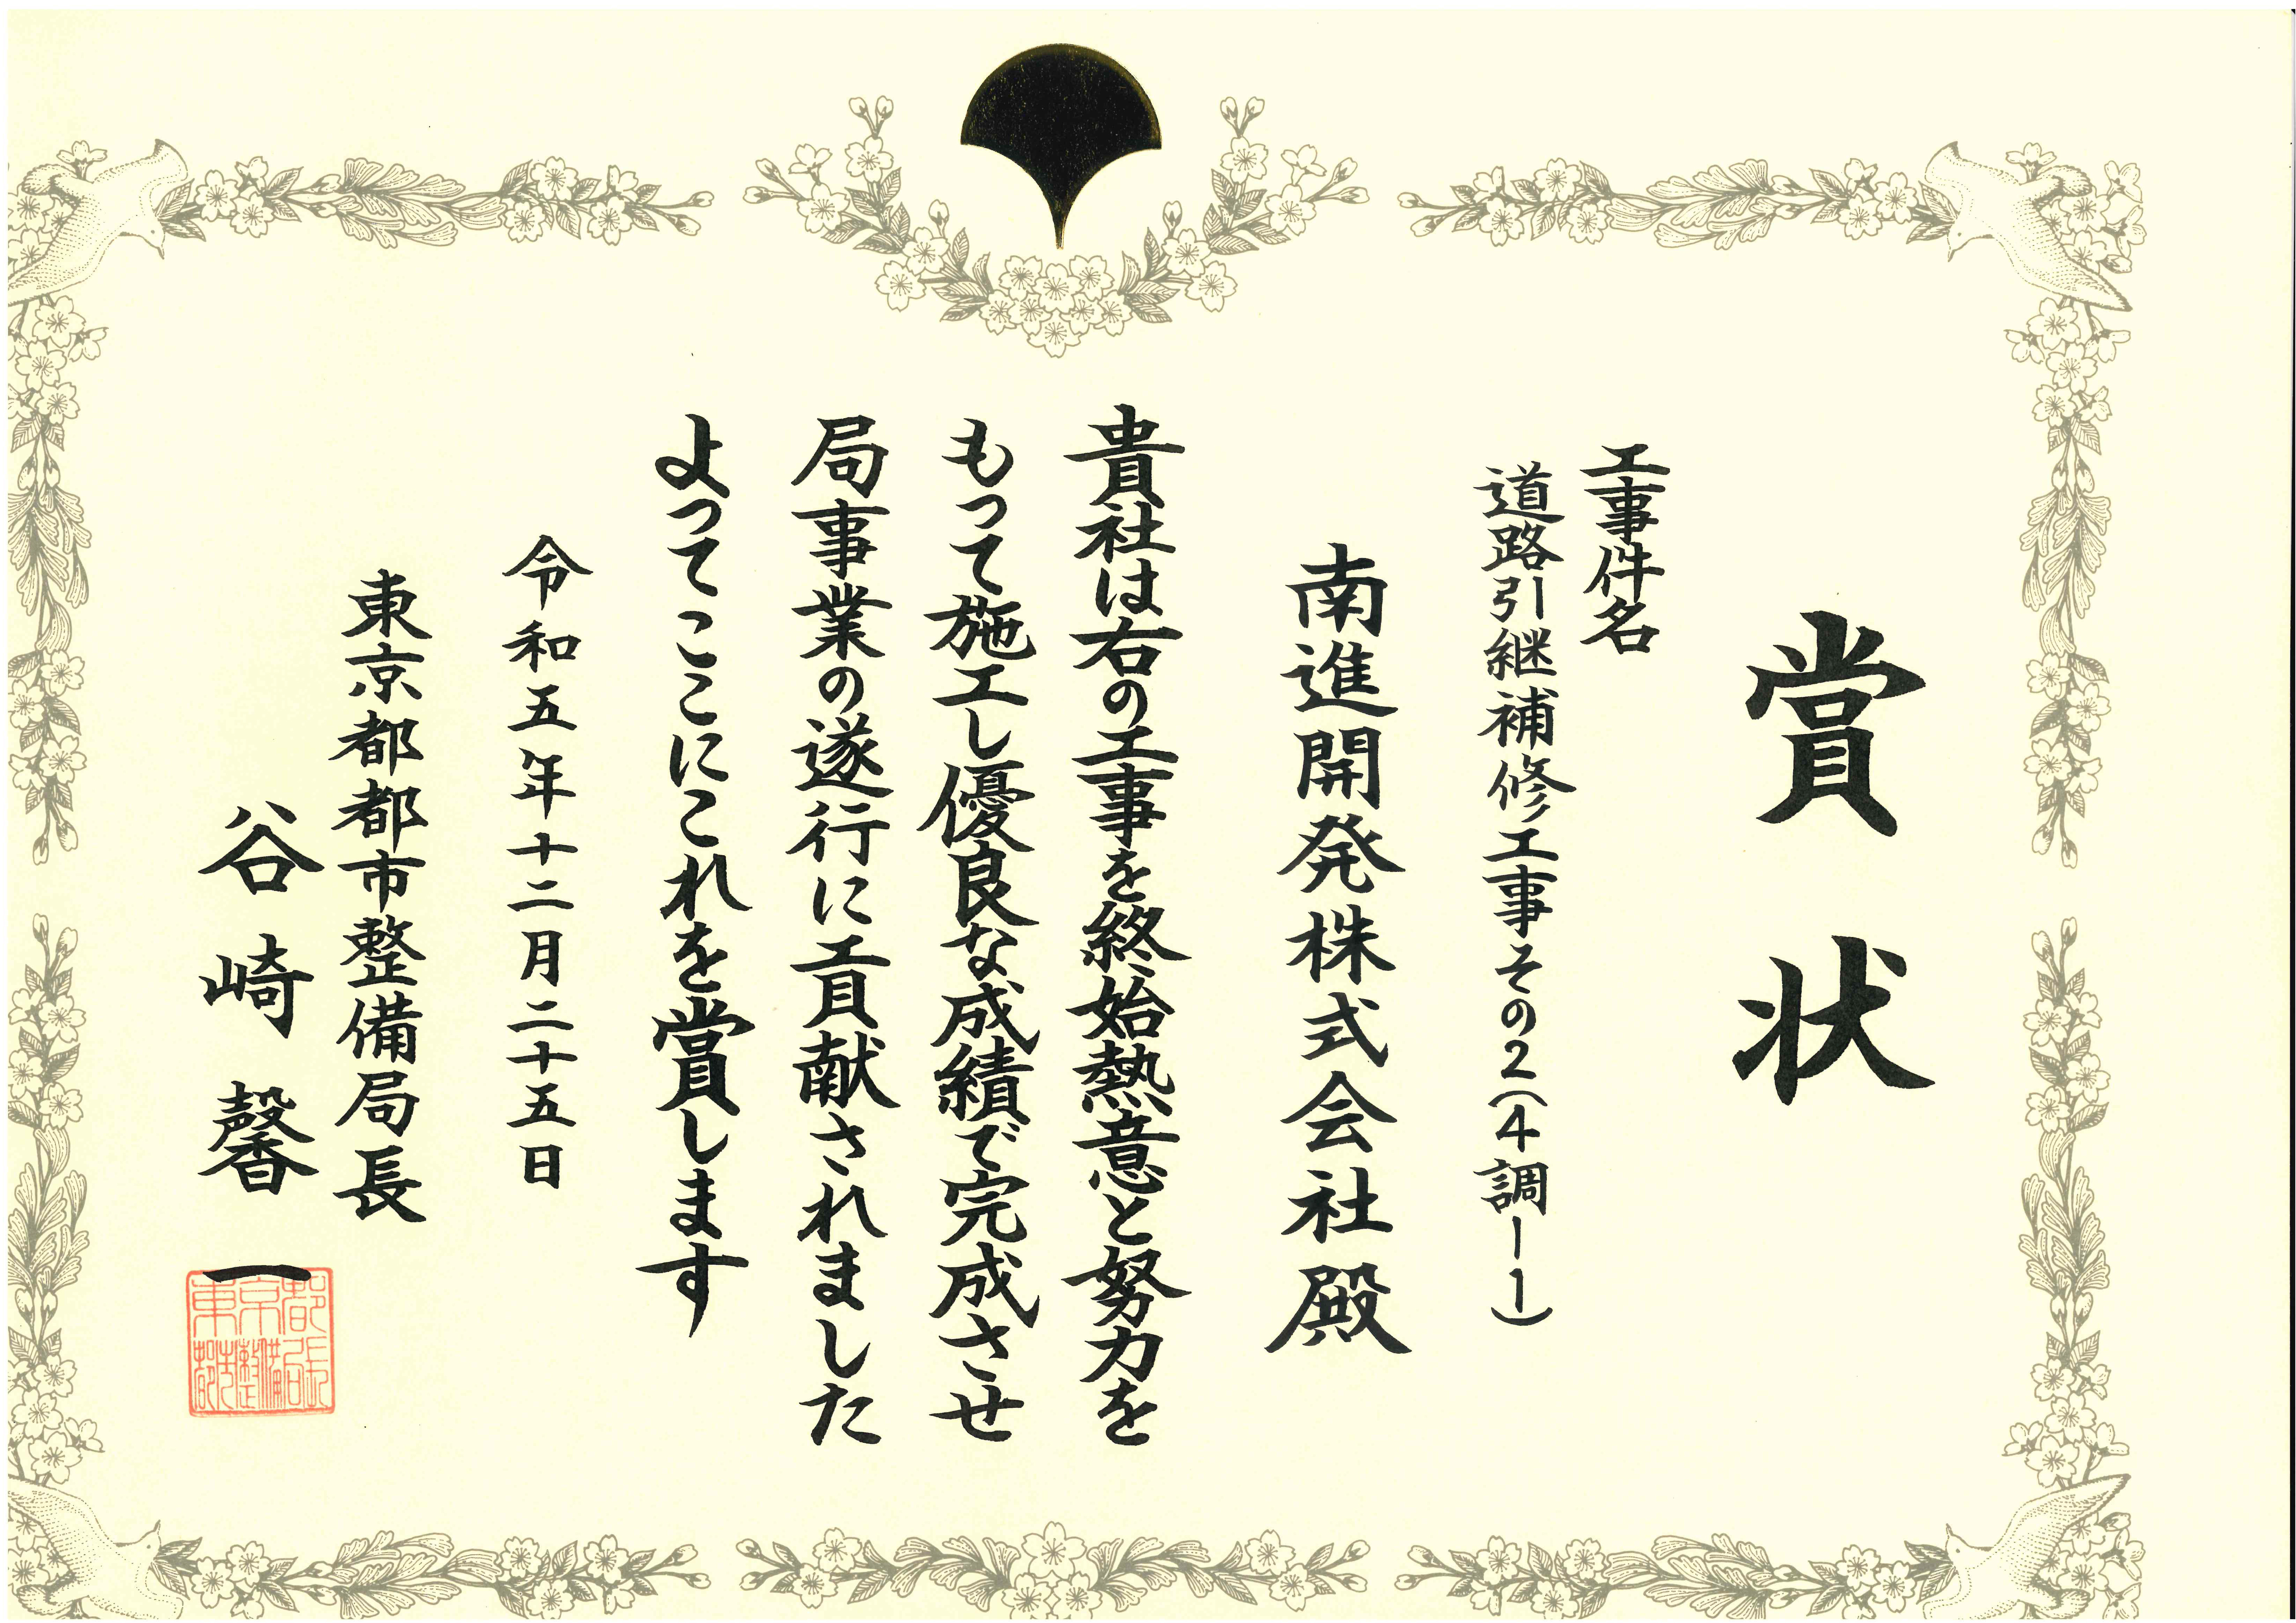 賞状
工事件名
道路引継補修工事その2(4調ー1)
南進開発株式会社殿
貴社は右の工事を終始熱意と努力を
もって施工し優良な成績で完成させ
局事業の遂行に貢献されました
よってここにこれを賞します
令和五年十二月二十五日
東京都都市整備局長
谷崎馨一